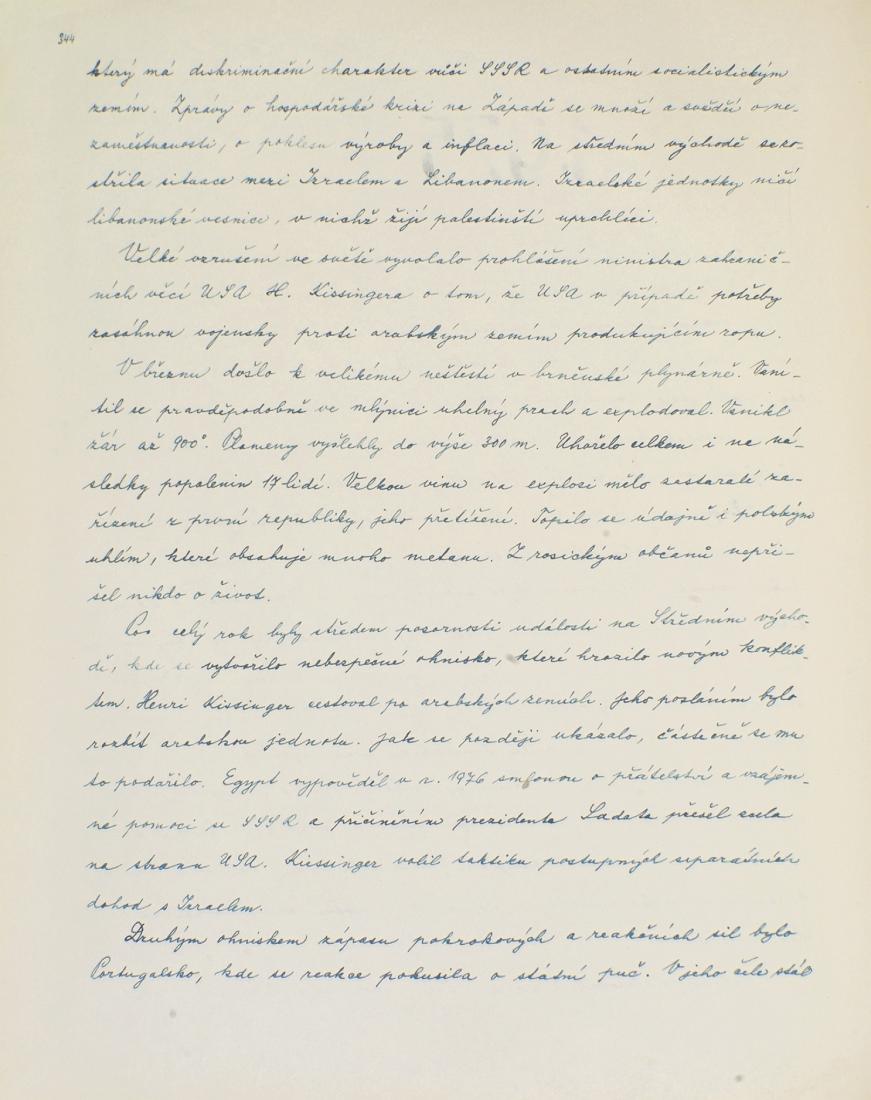 344
který má diskriminační charakter vůči SSSR a ostatním socialistickým
zemím. Zprávy o hospodářské krizi na Západě se množí a svědčí o ne-
zaměstnanosti, o poklesu výroby a inflaci. Na středním východě se zo-
střila situace mezi Izraelem a Libanonem. Izraelské jednotky ničí
libanonské vesnice, v nichž žijí palestinští uprchlíci.
Velké vzrušení ve světě vyvolalo prohlášení ministra zahranič-
ních věcí USA H. Kissingera o tom, že USA v případě potřeby
zasáhnou vojensky proti arabským zemím produkujícím ropu.
V březnu došlo k velikému neštěstí v brněnské plynárně. Vzní-
til se pravděpodobně ve mlýnici uhelný prach a explodoval. Vznikl
žár až 900°. Plameny vyšlehly do výše 300 m. Uhořelo celkem i na ná-
sledky popálenin 17 lidí. Velkou vinu na explosi mělo zastaralé za-
řízení z první republiky, jeho přetížení. Topilo se údajně i polským
uhlím, které obsahuje mnoho metanu. Z rosických občanů nepři-
šel nikdo o život.
Po celý rok byly středem pozornosti události na Středním výcho-
dě, kde se vytvořilo nebezpečné ohnisko, které hrozilo novým konflik-
tem. Henri Kissinger cestoval po arabských zemích. Jeho posláním bylo
rozbít arabskou jednotu. Jak se později ukázalo, částečně se mu
to podařilo. Egypt vypověděl v r. 1976 smlouvu o přátelství a vzájem-
né pomoci se SSSR a přičiněním prezidenta Sadata přešel zcela
na stranu USA. Kissinger volil taktiku postupných separátních
dohod s Izraelem.
Druhým ohniskem zápasu pokrokových a reakčních sil bylo
Portugalsko, kde se reakce pokusila o státní puč. V jeho čele stál